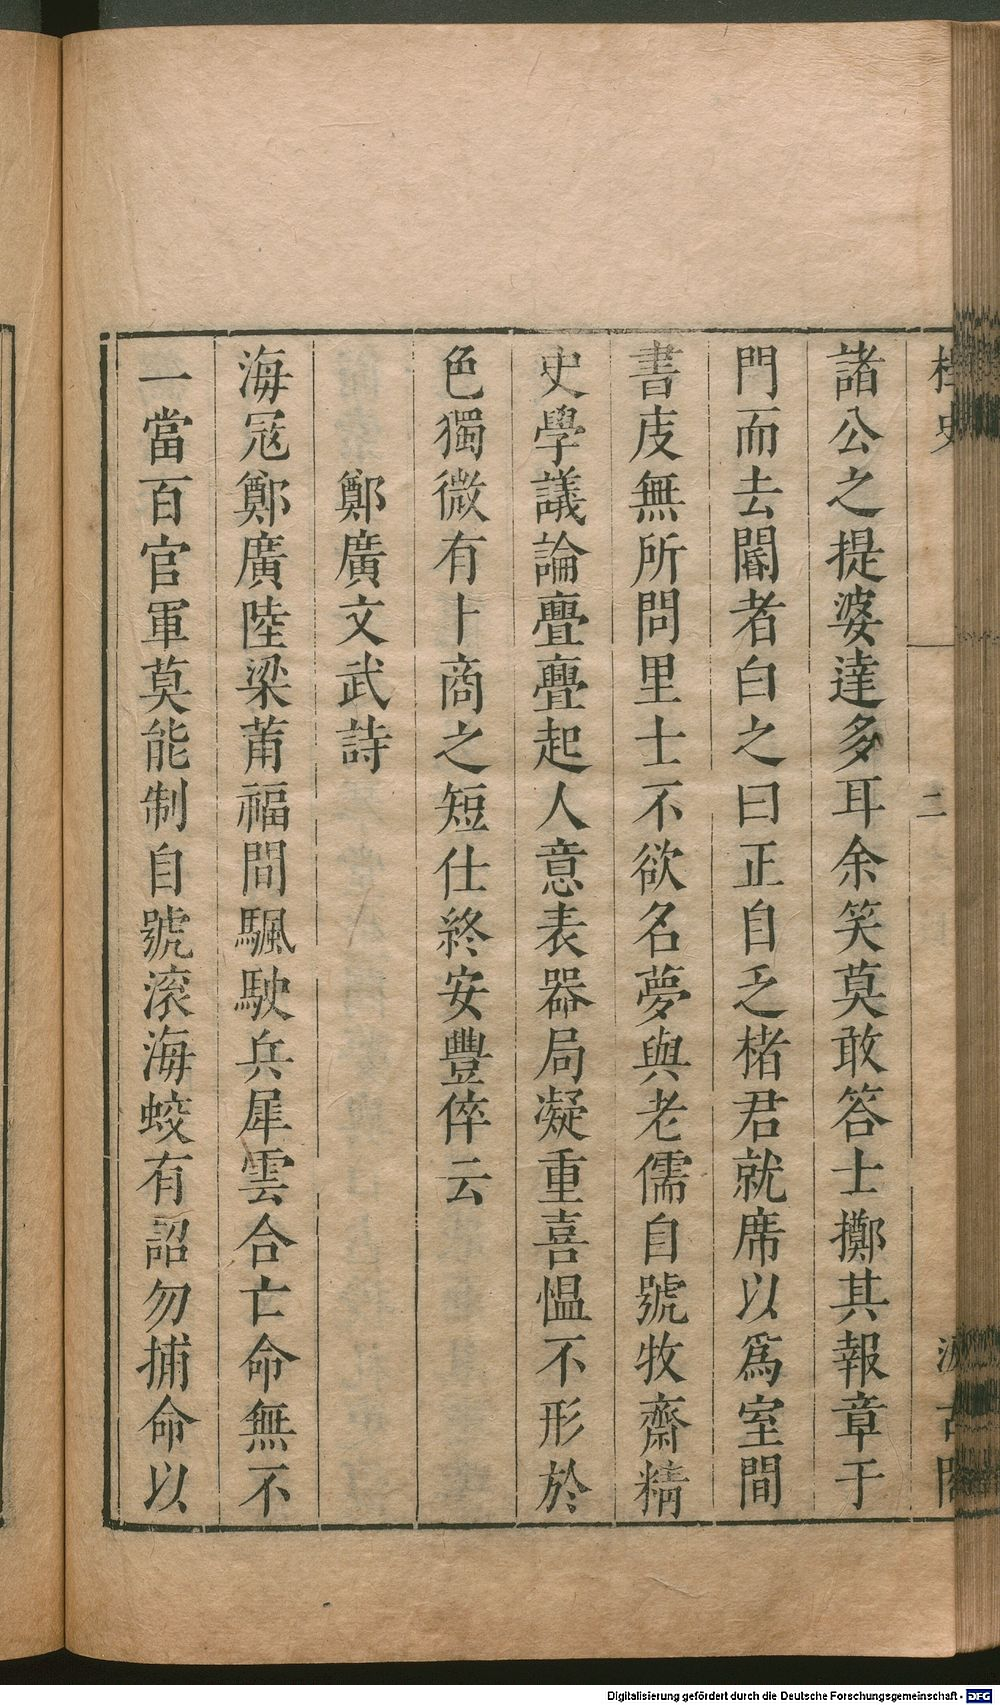 史
二
古
諸公之提婆達多耳余笑莫敢答士擲其報章于
門而去閽者白之曰正自乏楮君就席以爲室間
書庋無所問里士不欲名夢與老儒自號牧齋精
史學議論亹亹起人意表器局凝重喜愠不形於
色獨微有卜商之短仕終安豐倅云
鄭廣文武詩
海冦鄭廣陸梁莆福間颿駛兵犀雲合亡命無不
一當百官軍莫能制自號滚海蛟有詔勿捕命以
Digitalisierung gefördert durch die Deutsche Forschungsgemeinschaft - DFG